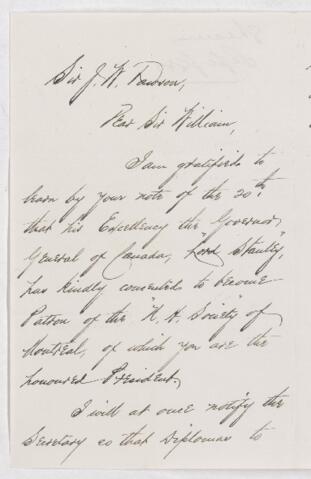 Sir J. W. Dawson,
Dear Sir William,
I am gratified to
learn by your note of the 20th,
that his Excellency the Governor,
General of Canada, "Lord Stanley",
has kindly consented to become
Patron of the "N. H. Society" of
Montreal, of which you are the
honoured President.
I will at once notify the
Secretary so that Diplomas to